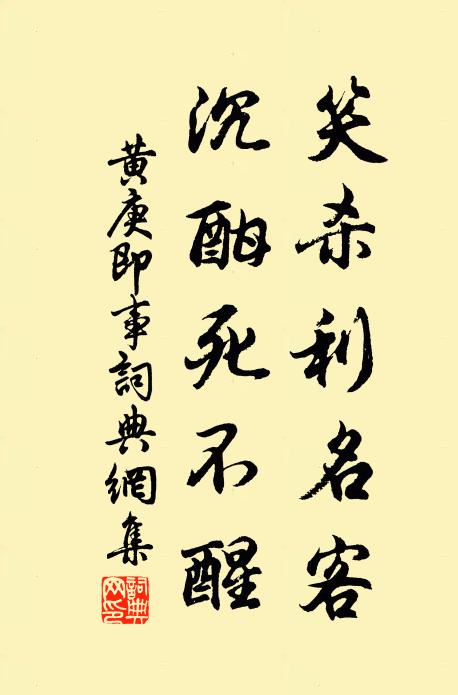 笑杀利名客
沉酣死不醒
黄庚即事詞典網集
詞典网印